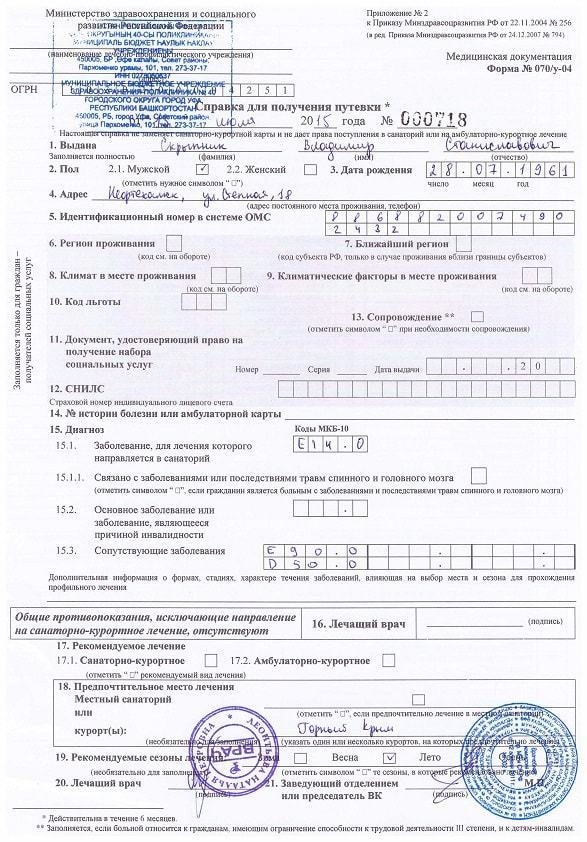 Министерство здравоохранения и социального
развития Российской Федерации
Приложение № 2
к Приказу Минздравсоцразвития РФ от 22.11.2004 № 256
(в ред. Приказа Минздравсоцразвития РФ от 24.12.2007 № 794)
(наименование лечебно-профилактического учреждения)
450005, БР, Өфө ҡалаһы, Совет районы,
Пархоменко урамы, 101, тел. 273-37-17
МУНИЦИПАЛЬНОЕ БЮДЖЕТНОЕ УЧРЕЖДЕНИЕ
ЗДРАВООХРАНЕНИЯ ПОЛИКЛИНИКА № 40
ГОРОДСКОГО ОКРУГА ГОРОД УФА
РЕСПУБЛИКИ БАШКОРТОСТАН
450005, РБ, город Уфа, Советский район
улица Пархоменко, 101, тел. 273-37-17
Медицинская документация
Форма № 070/у-04
ОГРН
Справка для получения путевки *
июля 2015 года № 000718
Настоящая справка не заменяет санаторно-курортной карты и не дает права поступления в санаторий или на амбулаторно-курортное лечение
1. Выдана Скрыпник Владимир Станиславович
Заполняется полностью (фамилия) (имя) (отчество)
2. Пол 2.1. Мужской ✓ 2.2. Женский 3. Дата рождения 28.07.1961
(отметить нужное символом “ □”) число месяц год
4. Адрес Нефтекамск, ул. Степная, 18
(адрес постоянного места проживания, телефон)
5. Идентификационный номер в системе ОМС 886882007490
2432
6. Регион проживания 7. Ближайший регион
(код см. на обороте) (код субъекта РФ, только в случае проживания вблизи границы субъектов)
8. Климат в месте проживания 9. Климатические факторы в месте проживания
(код см. на обороте) (код см. на обороте)
10. Код льготы
13. Сопровождение **
(отметить символом “ □” при необходимости сопровождения)
Заполняется только для граждан – получателей социальных услуг
11. Документ, удостоверяющий право на
получение набора
социальных услуг Номер Серия Дата выдачи . . 20
12. СНИЛС
Страховой номер индивидуального лицевого счета
14. № истории болезни или амбулаторной карты
15. Диагноз Коды МКБ-10
15.1. Заболевание, для лечения которого E14.0
направляется в санаторий
15.1.1. Связано с заболеваниями или последствиями травм спинного и головного мозга
(отметить символом “ □”, если гражданин является больным с заболеваниями и последствиями травм спинного и головного мозга)
15.2. Основное заболевание или
заболевание, являющееся
причиной инвалидности
15.3. Сопутствующие заболевания E90.0
D50.0
Дополнительная информация о формах, стадиях, характере течения заболеваний, влияющая на выбор места и сезона для прохождения
профильного лечения
Общие противопоказания, исключающие направление
на санаторно-курортное лечение, отсутствуют
16. Лечащий врач (подпись)
17. Рекомендуемое лечение
17.1. Санаторно-курортное 17.2. Амбулаторно-курортное
(отметить “ □” рекомендуемый вид лечения)
18. Предпочтительное место лечения
Местный санаторий
или (отметить “ □”, если предпочтительно лечение в местном санатории)
курорт(ы): Горный Крым
(необязательно для заполнения) (указать один или несколько курортов, на которых предпочтительно лечение)
19. Рекомендуемые сезоны лечения Зима Весна ✓ Лето Осень
(необязательно для заполнения) (отметить символом “ □” те сезоны, в которые рекомендовано лечение)
20. Лечащий врач 21. Заведующий отделением М.П.
(подпись) или председатель ВК (подпись)
ВРАЧ
* Действительна в течение 6 месяцев.
** Заполняется, если больной относится к гражданам, имеющим ограничение способности к трудовой деятельности III степени, и к детям-инвалидам